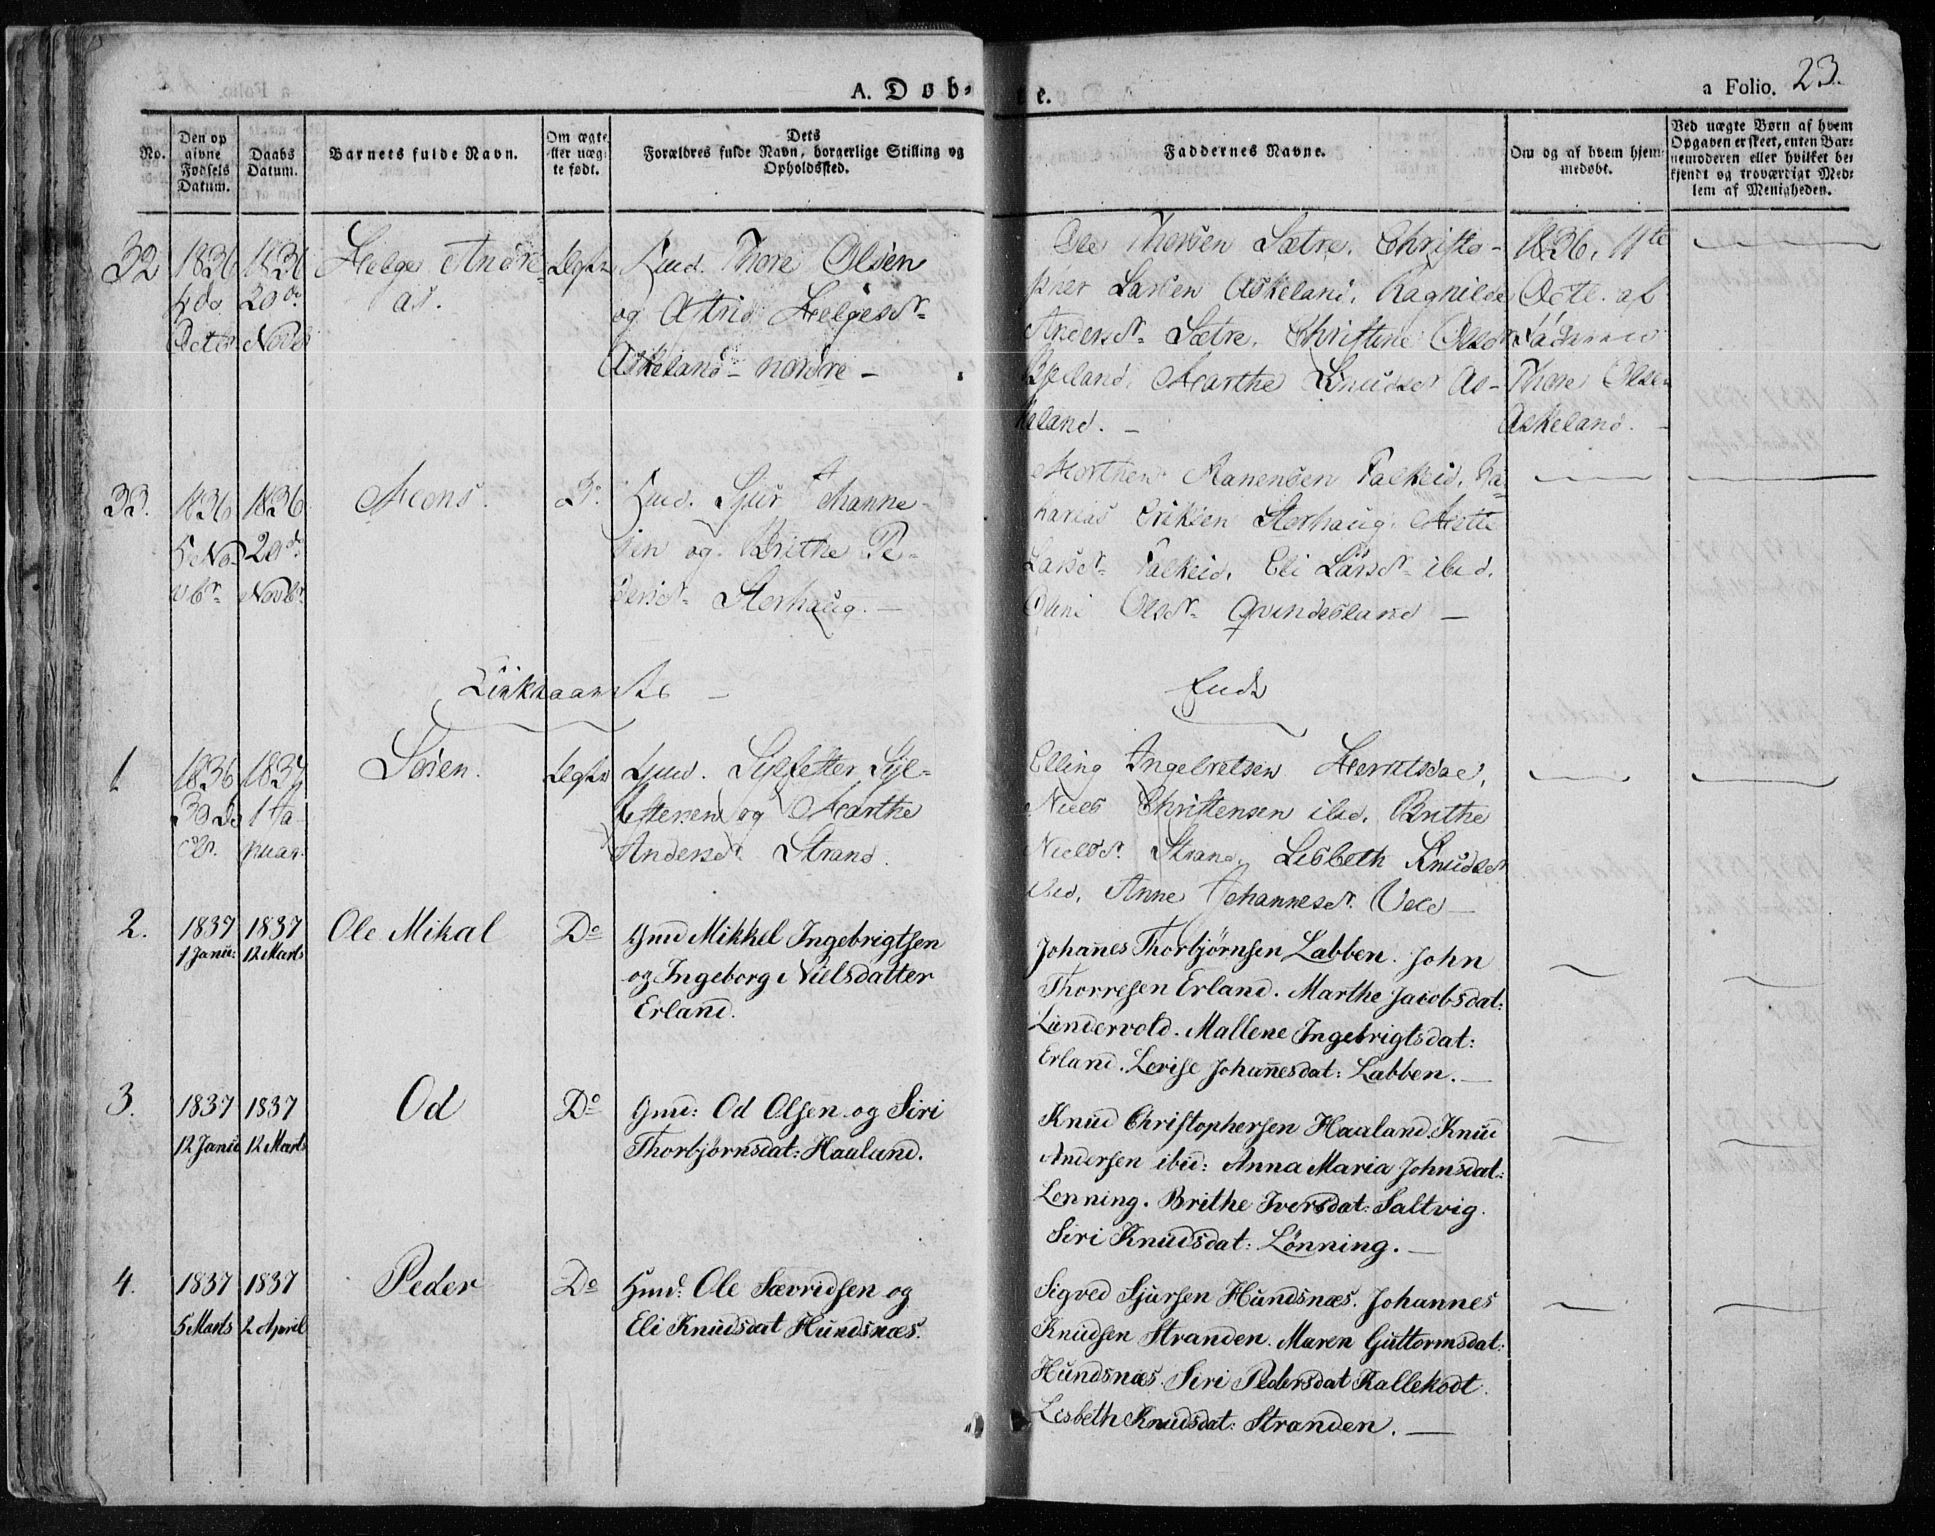 A. Døb-
e.
a Folio. 23.
No.
Den op
givne
Fødsels
Datum.
Daabs
Datum.
Barnets fulde Navn.
Om ægte
eller uæg-
te født.
Dets
Forældres fulde Navn, borgerlige Stilling og
Opholdssted.
Faddernes Navne.
Om og af hvem hjem-
medøbt.
Ved uægte Børn af hvem
Opgaven er skeet, enten Bar-
nemoderen eller hvilket be-
kjendt og troværdigt Med-
lem af Menigheden.
32
1836
1836
20de
Novbr
Helge Andre-
as.
Ægte
Gmd. Thore Olsen
og Astrid Helgesdr
Askeland nordre -
Ole Thorsen Sætre. Christo-
pher Larsen Askeland. Ragnilde
Andersdr Sætre. Christine Olsdr
Marthe Knudsdr As-
keland. -
1836. 11te
Octbr. af
Faderen
Thore Olsen
Askeland. -
33.
1836
5 No-
vbr
1836
20de
Novbr
Mons.
Do
Gmd. Sjur Johanne-
sen og Brithe Pe-
dersdr Storhaug. -
Morthen Aanensen Falkeid. Za-
karias Eriksen Storhaug.
Larsdr Falkeid. Eli Larsdr ibid.
Olsdr Qvindesland -
1
1836
30 De-
cbr.
1837
1 Ja-
nuar.
Søren.
Ægte
Gmd. Sylfester Syl-
festersen og Marthe
Andersdr Strand.
Elling Ingebretsen
Niels Christensen ibid. Brithe
Nielsdr. Strand, Lisbeth Knudsdr
ibid. Anne Johannesdr.
2.
1837
1 Janu:
1837
12 Marts
Ole Mikal
Do
Gmd Mikkel Ingebrigtsen
og Ingeborg Nielsdatter
Erland.
Johannes Thorbjørnsen Labben. John
Thorresen Erland. Marthe Jacobsdat:
Lundervold. Mallene Ingebrigtsdat:
Erland. Lovise Johannesdat: Labben. -
3.
1837
12 Janu
1837
12 Marts
Od
Do
Gmd: Od Olsen og Siri
Thorbjørnsdat: Haaland.
Knud Christophersen Haaland. Knud
Andersen ibid: Anna Maria Johnsdat:
Lønning. Brithe Iversdat: Saltvig.
Siri Knudsdat: Lønning. -
4.
1837
5 Marts
1837
2 April
Peder
Do
Gmd: Ole Sævridsen og
Eli Knudsdat Hundsnæs.
Sigved Sjursen Hundsnæs. Johannes
Knudsen Stranden. Maren Guttormsdat:
Hundsnæs. Siri Pedersdat Kallekodt.
Lisbeth Knudsdat: Stranden. -